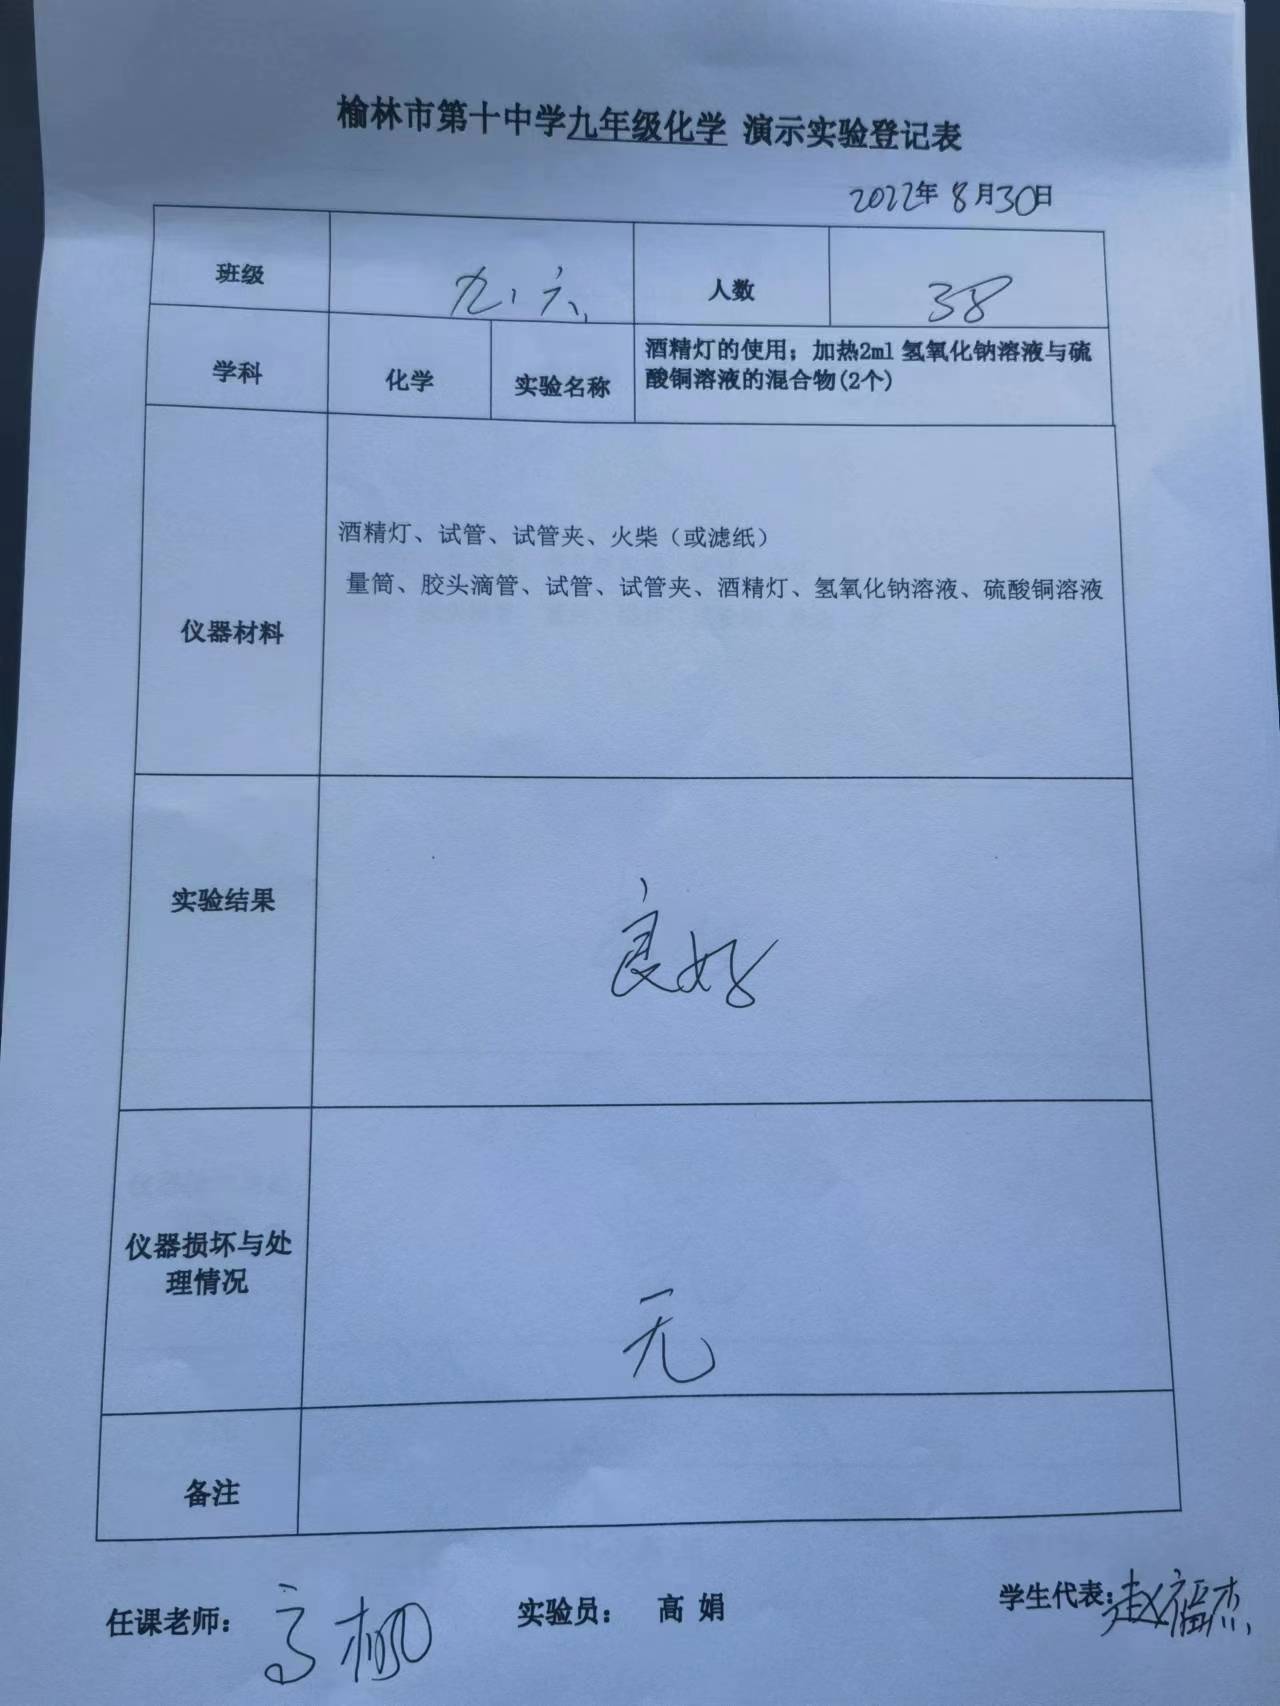 榆林市第十中学九年级化学 演示实验登记表
2022年8月30日
班级 九、六 人数 38
学科 化学 实验名称 酒精灯的使用；加热2ml 氢氧化钠溶液与硫
酸铜溶液的混合物(2个)
仪器材料
酒精灯、试管、试管夹、火柴（或滤纸）
量筒、胶头滴管、试管、试管夹、酒精灯、氢氧化钠溶液、硫酸铜溶液
实验结果 良好
仪器损坏与处
理情况
无
备注
任课老师： 高 实验员： 高 娟 学生代表：赵福杰